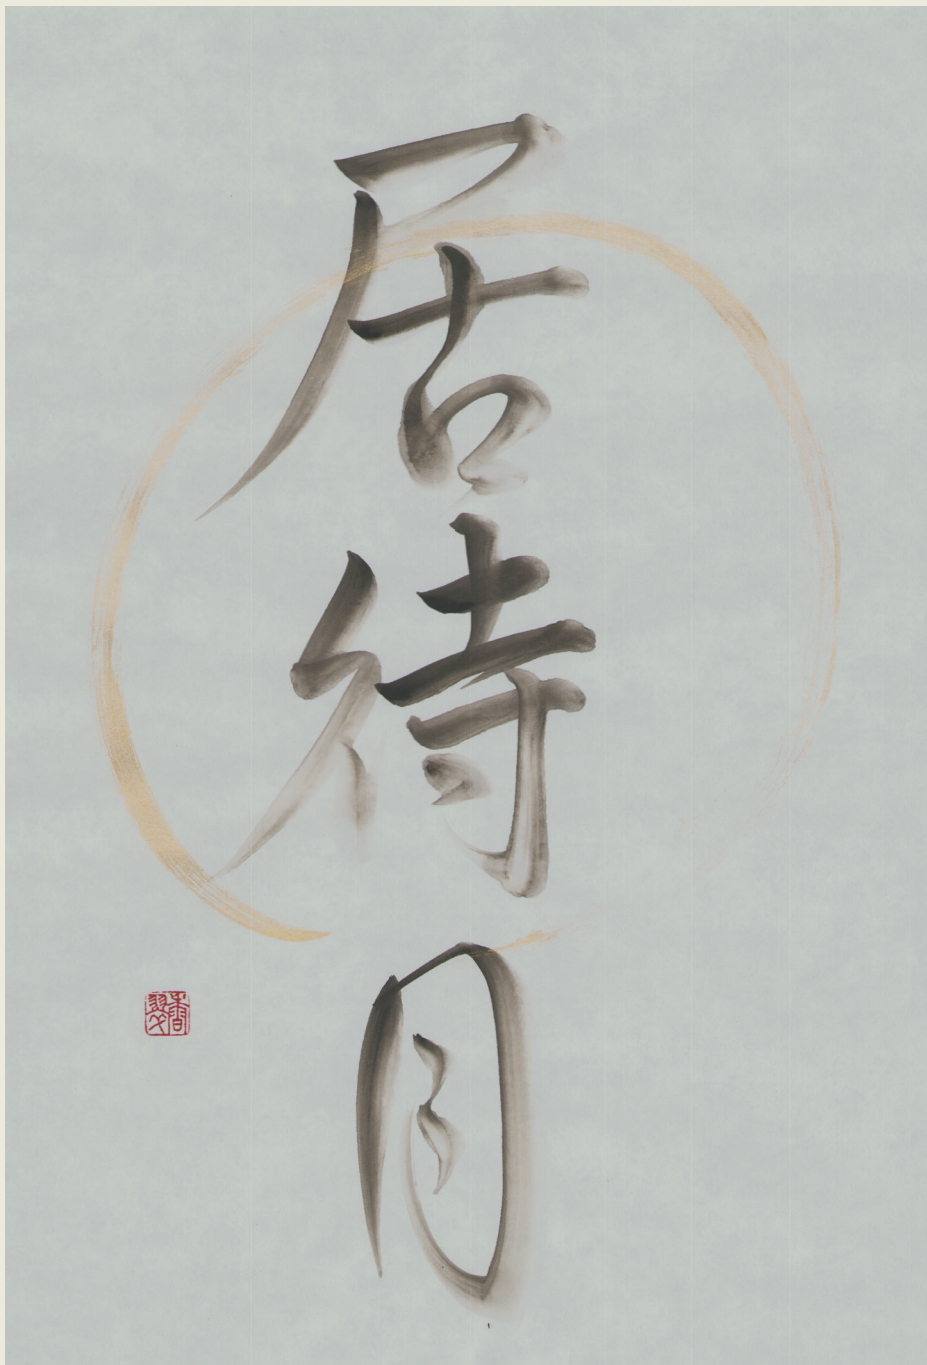 居待月